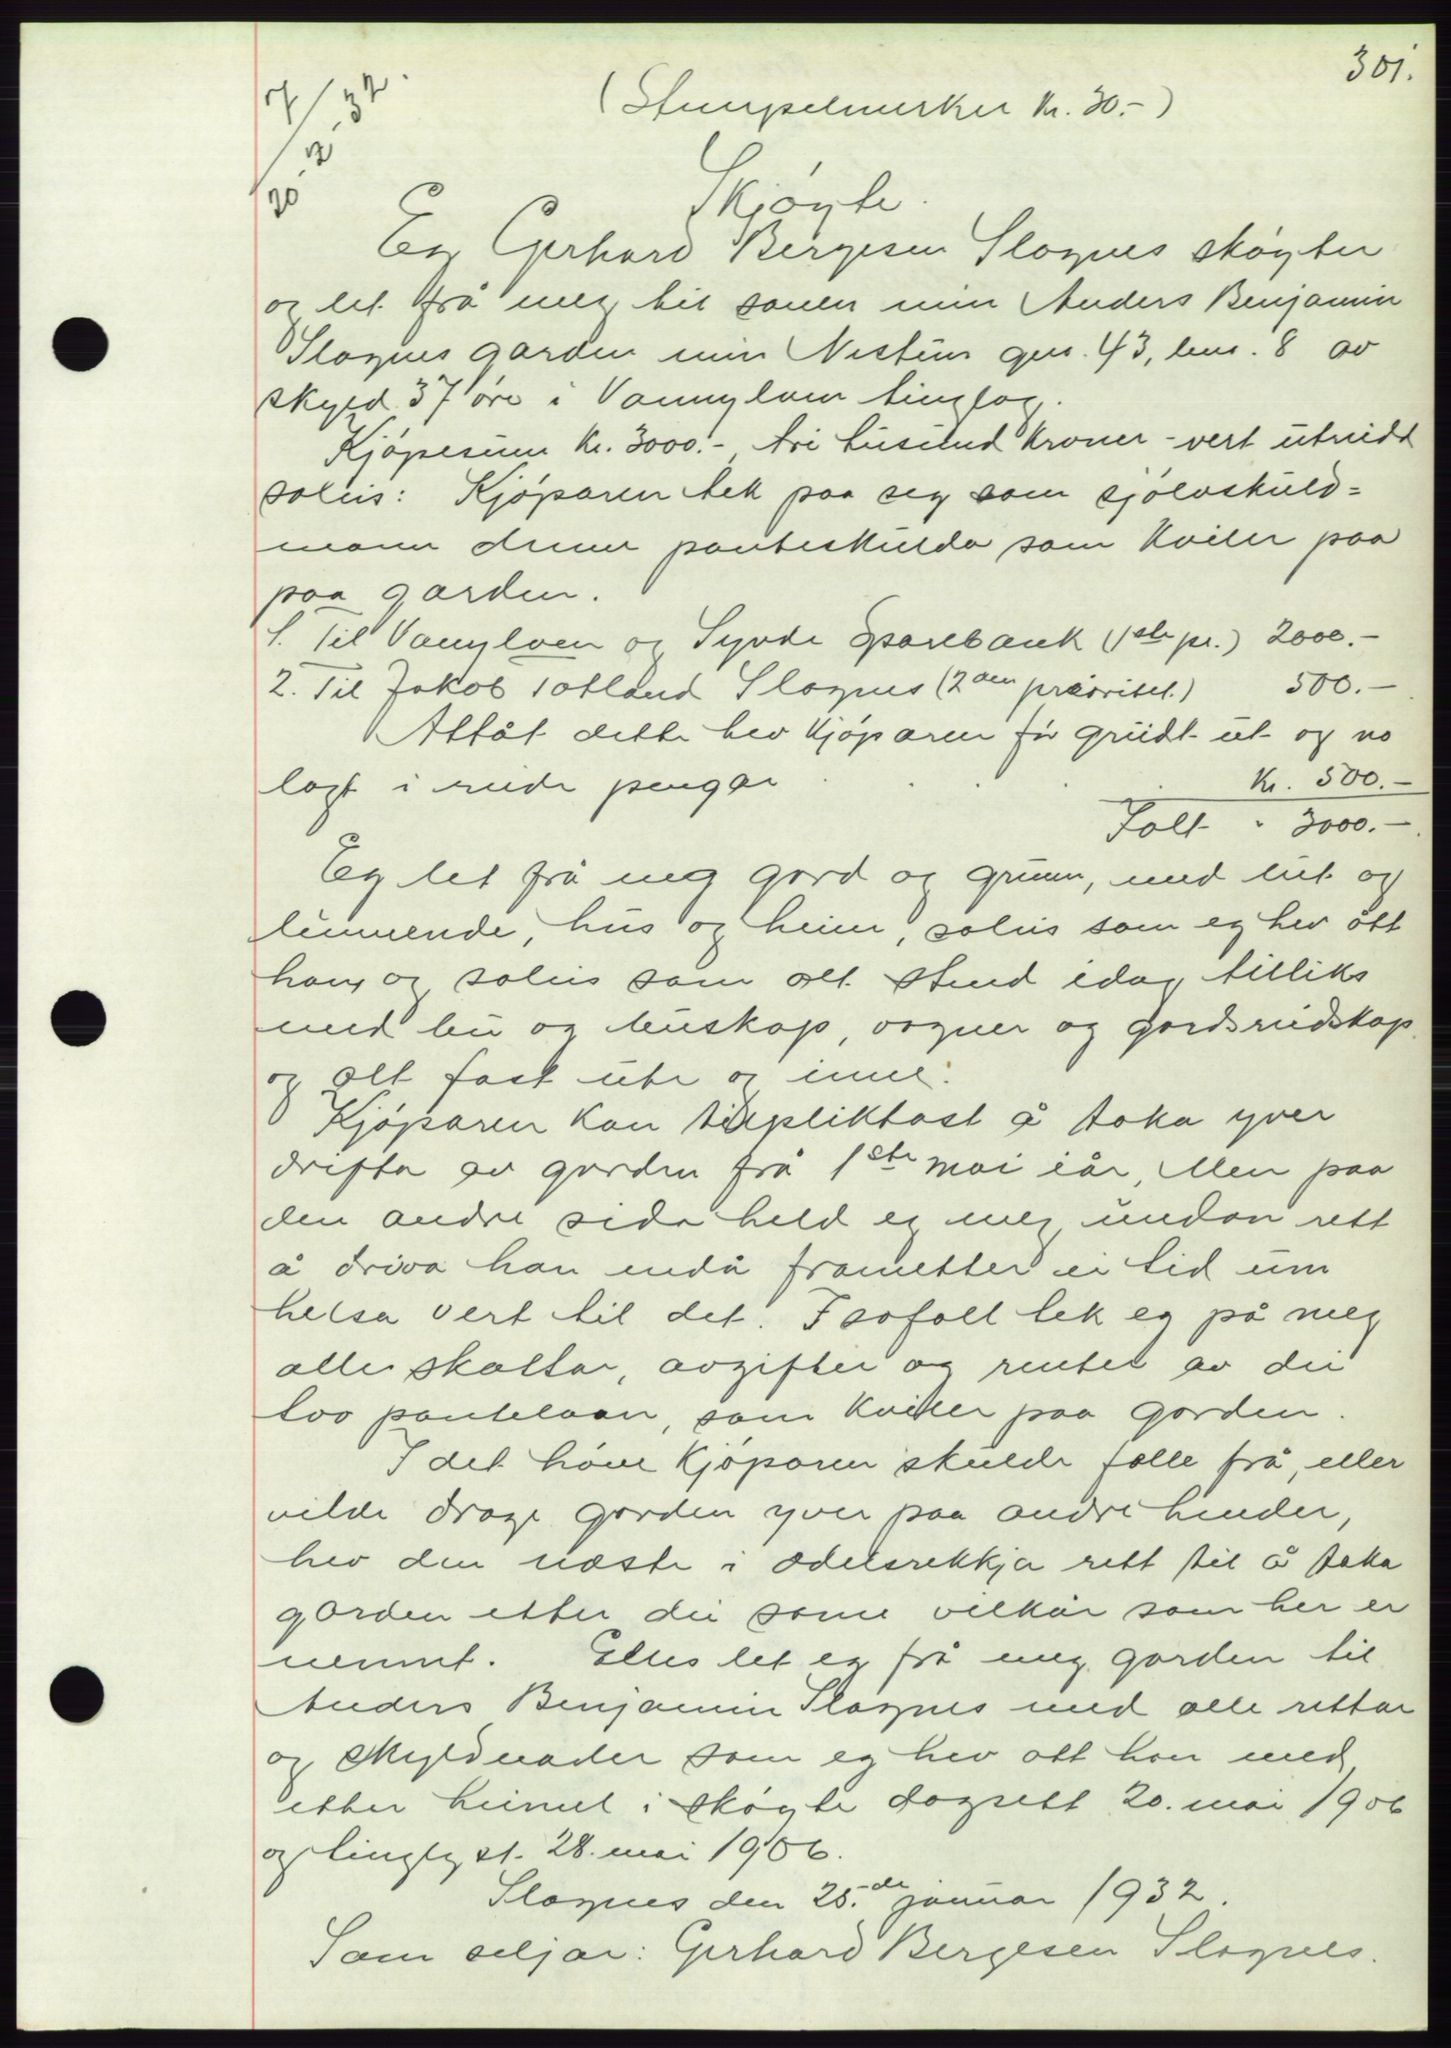 301.
7/20-2-32.
(Stempelmerker Kr. 30.-)
Skjøyte.
Eg Gerhard Bergesen Slagnes skøyter
og let frå meg til sonen min Anders Benjamin
Slagnes garden min Nestun gnr. 43, bnr. 8 av
skyld 37 øre i Vannylven tinglag.
Kjøpesum Kr. 3000.-, tri tusund kroner - vert utreidd
soleis: Kjøparen tek paa seg som sjølvskuld=
mann denne panteskulda som kviler paa
paa garden.
1. Til Vannylven og Syvde Sparebank (1ste pr.) 2000.-
2. Til Jakob Totland Slagnes (2den prioritet.) 500.-
Attåt dette hev kjøparen fyr greidt ut og no
lagt i reide pengar . . . . Kr. 500.-
Ialt " 3000.-
Eg let frå meg gard og grunn, med lut og
lunnende, hus og heim, soleis som eg hev ått
han, og soleis som alt stend idag, tilliks
med bu og buskap, vogner og gardsreidskap
og alt fast ute og inne.
Kjøparen kan tilpliktast å taka yver
drifta av garden frå 1ste mai iår, Men paa
den andre sida held eg meg undan rett
å driva han endå frametter ei tid um
helsa vert til det. I sofall tek eg på meg
alle skattar, avgifter og renter av dei
tvo pantelaan, som kviler paa garden.
I det høve kjøparen skulde falle frå, eller
vilde drage garden yver paa andre hender,
hev den næste i odelsrekkja rett til å taka
garden etter dei same vilkår som her er
nemnt. Elles let eg frå meg garden til
Anders Benjamin Slagnes med alle rettar
og skyldnader som eg hev ått han med
etter heimel i skøyte dagsett 20. mai 1906
og tinglyst 28. mai 1906.
Slagnes den 25.de januar 1932.
Som seljar: Gerhard Bergesen Slagnes.